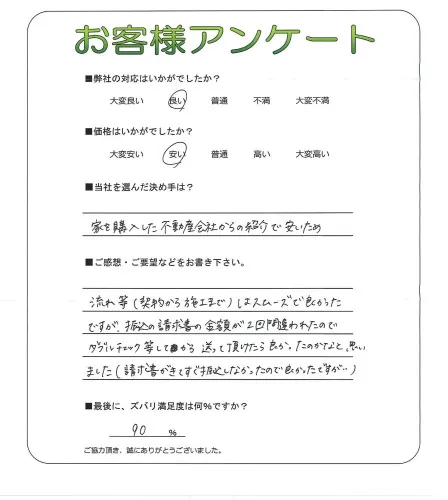 お客様アンケート
■弊社の対応はいかがでしたか?
大変良い 良い 普通 不満 大変不満
■価格はいかがでしたか?
大変安い 安い 普通 高い 大変高い
■当社を選んだ決め手は?
家を購入した不動産会社からの紹介で安いため
■ご感想・ご要望などをお書き下さい。
流れ等(契約から施工まで)はスムーズで良かった
ですが、振込の請求書の金額が2回間違われたので
ダブルチェック等してから送って頂けたら良かったのかなと思い
ました(請求書がきてすぐ振込しなかったので良かったですが…)
■最後に、ズバリ満足度は何%ですか?
90 %
ご協力頂き、誠にありがとうございました。